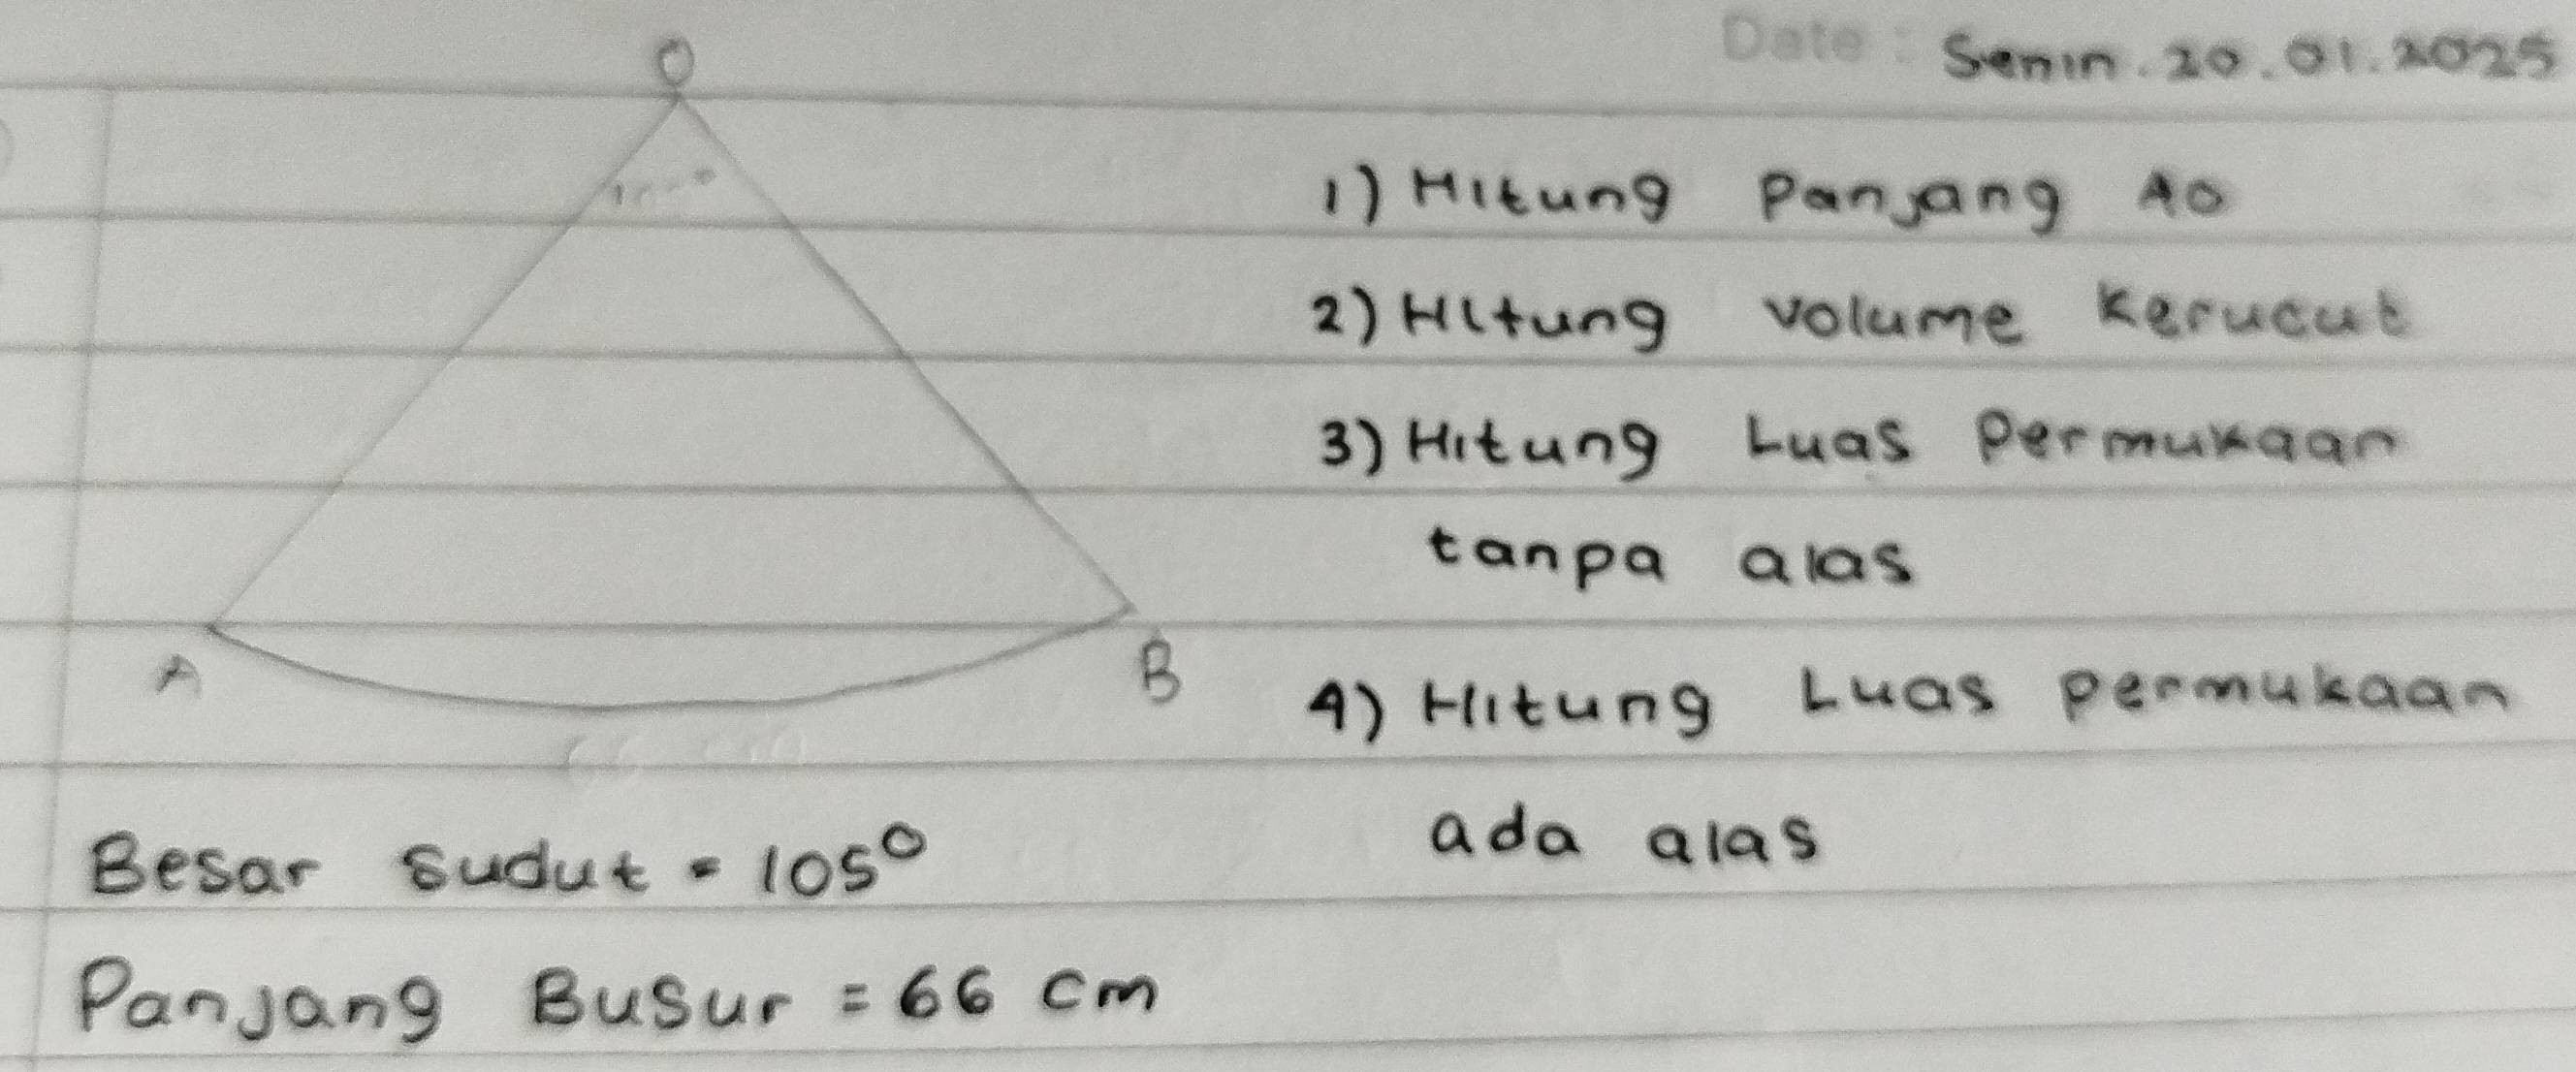 Date : Senin . 20 . 01 . 2025
O
A
B
Besar sudut = 105°
Panjang Busur = 66 cm
1) Hitung Panjang AO
2) Hitung volume Kerucut
3) Hitung Luas Permukaan
tanpa alas
4) Hitung Luas permukaan
ada alas